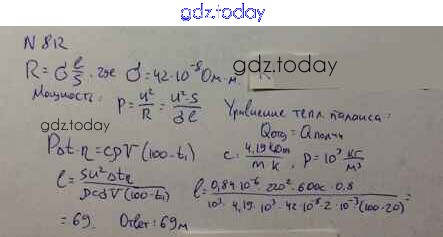 gdz.today
N 812
R = σ l/S, где σ = 42·10⁻⁸ Ом·м. R
gdz.today
Мощность: P = U²/R = U²·S/σl
Уравнение тепл. баланса:
Qотд = Qполуч
gdz.today
PΔt·η = cρV(100-t₁)
c = 4,19кДж/m K, ρ = 10³ кг/м³
l = SU²Δtη/ρcσV(100-t₁)
l = 0,84·10⁻⁶·220²·600с·0,8/10³·4,19·10³·42·10⁻⁸·2·10⁻³(100-20) =
= 69. Ответ: 69м
gdz.today